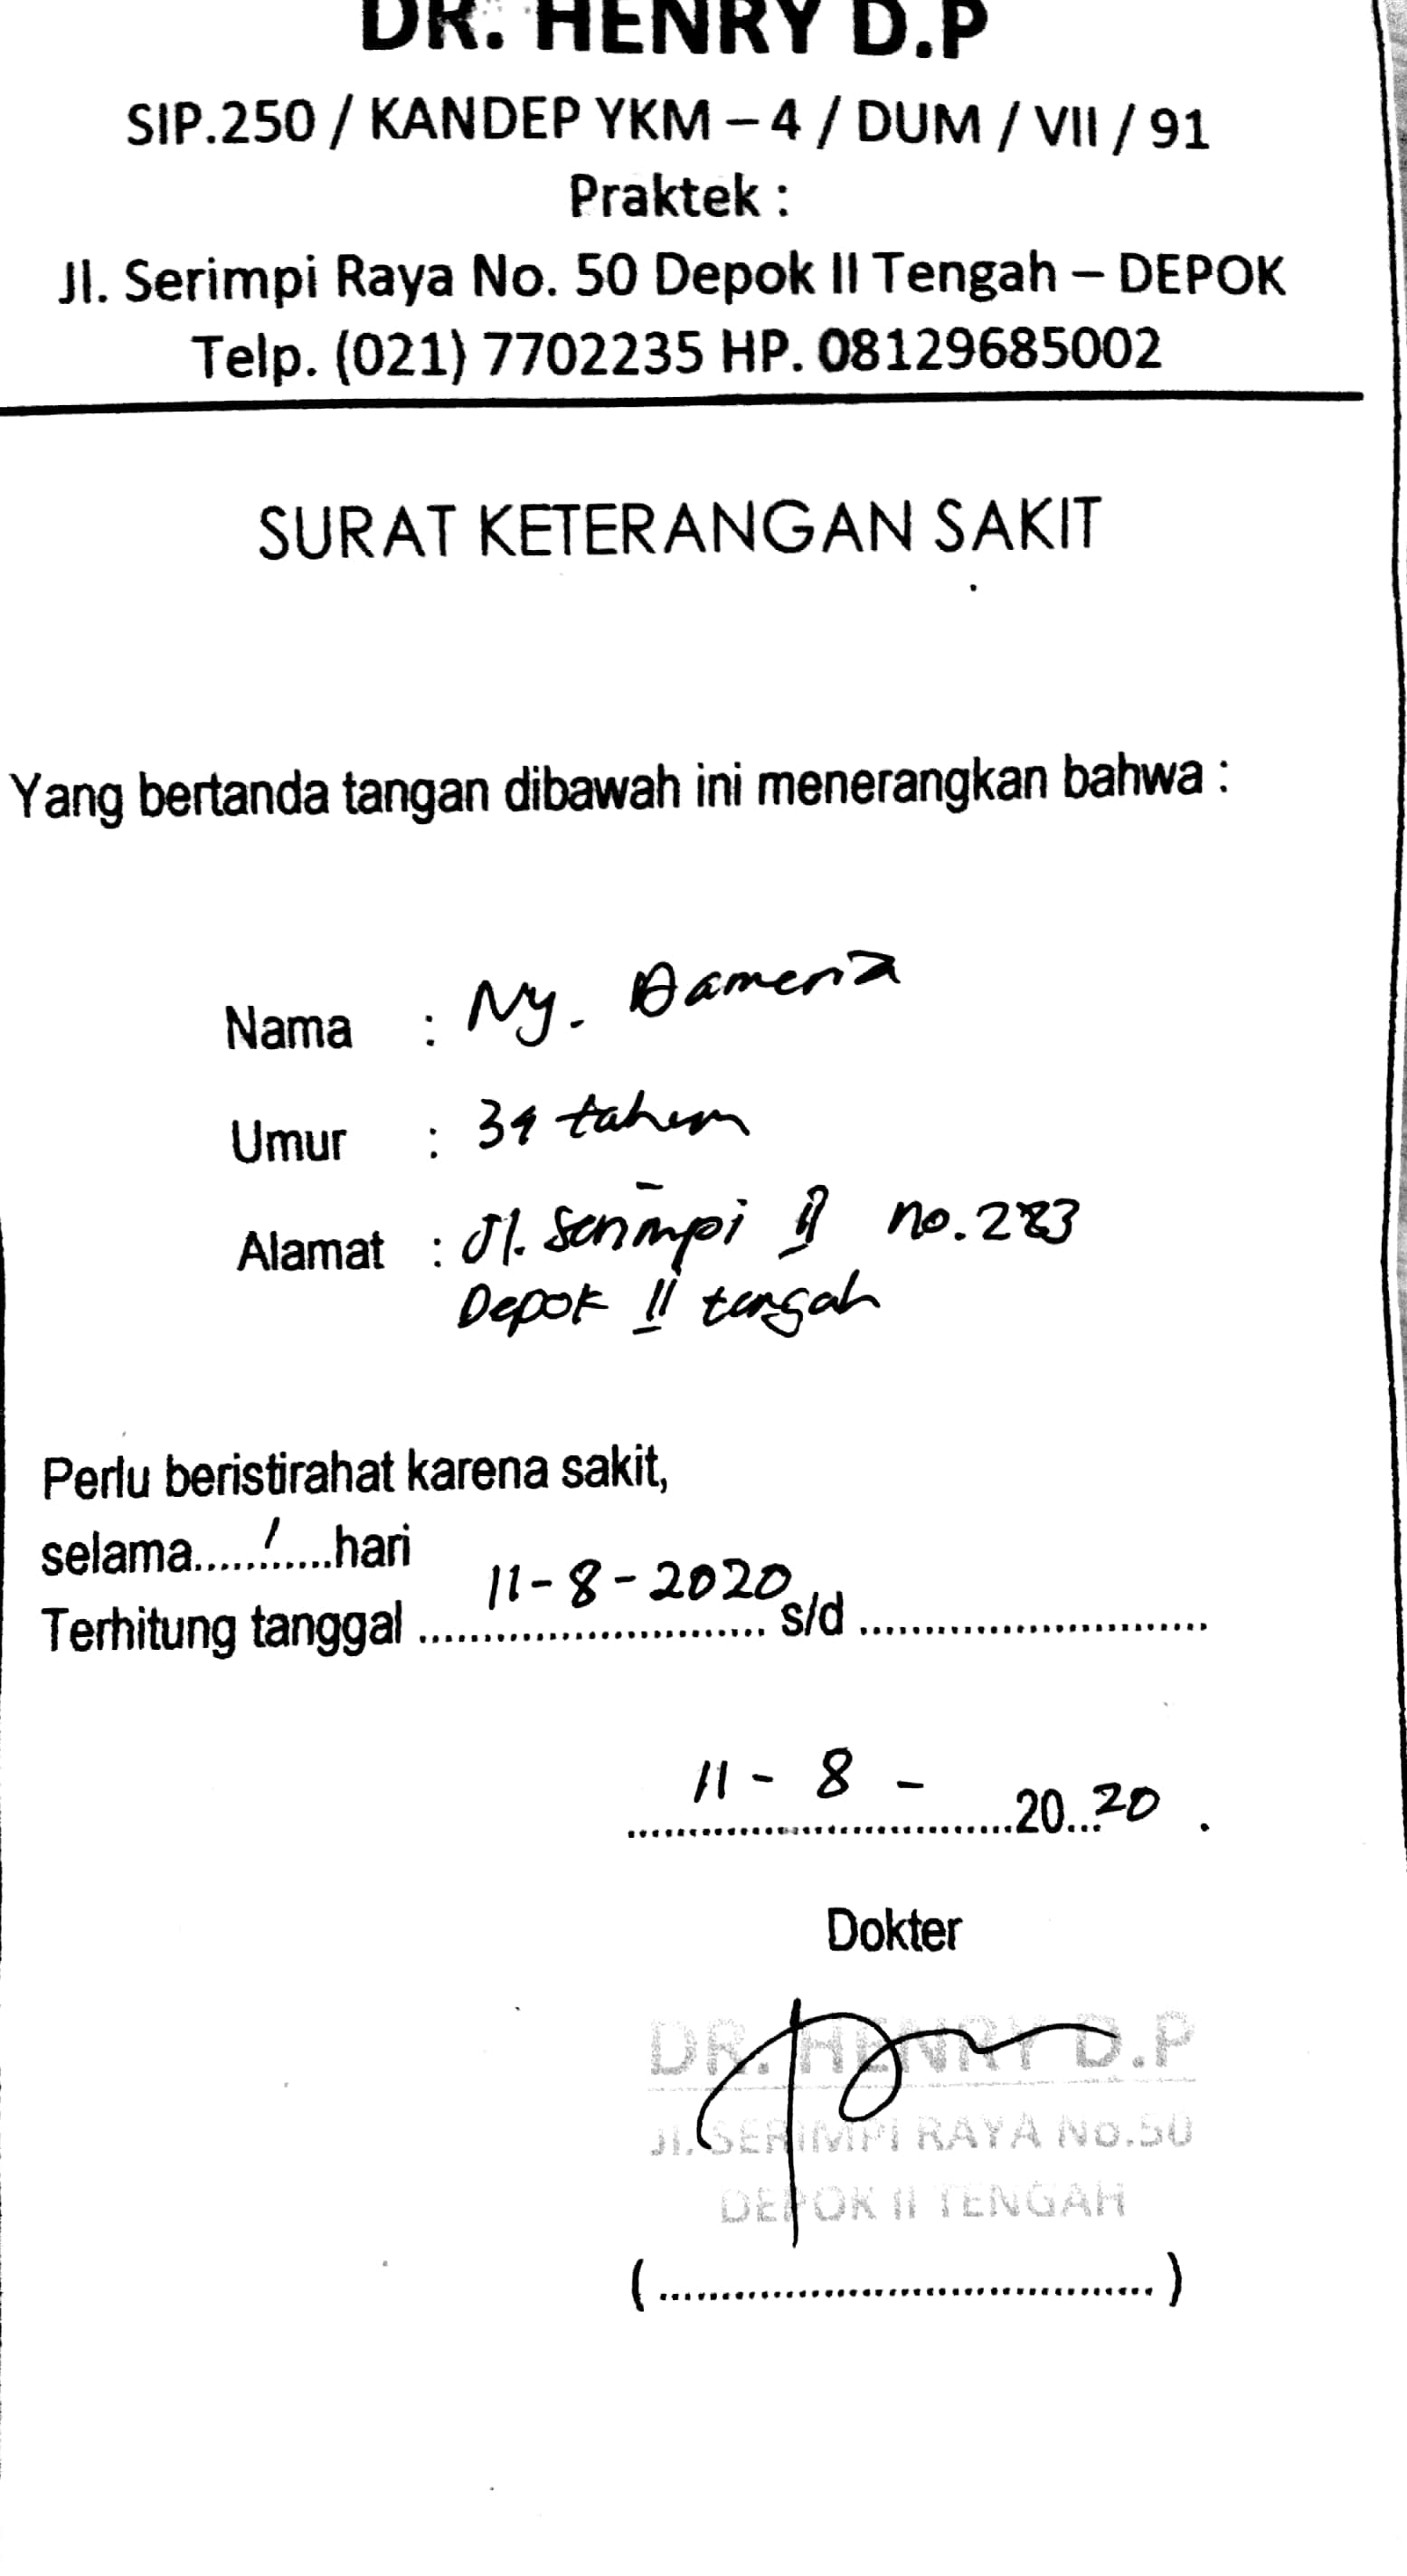 DR. HENRY D.P
SIP.250 / KANDEP YKM – 4 / DUM / VII / 91
Praktek :
Jl. Serimpi Raya No. 50 Depok II Tengah – DEPOK
Telp. (021) 7702235 HP. 08129685002
SURAT KETERANGAN SAKIT
Yang bertanda tangan dibawah ini menerangkan bahwa :
Nama : Ny. Dameria
Umur : 34 tahun
Alamat : Jl. Serimpi II no.
Depok II tengah
Perlu beristirahat karena sakit,
selama.....1.....hari
Terhitung tanggal 11-8-2020 s/d ............................
11 - 8 - 20...20
Dokter
DR. HENRY D.P
Jl. SERIMPI RAYA No.50
DEPOK II TENGAH
(........................................)